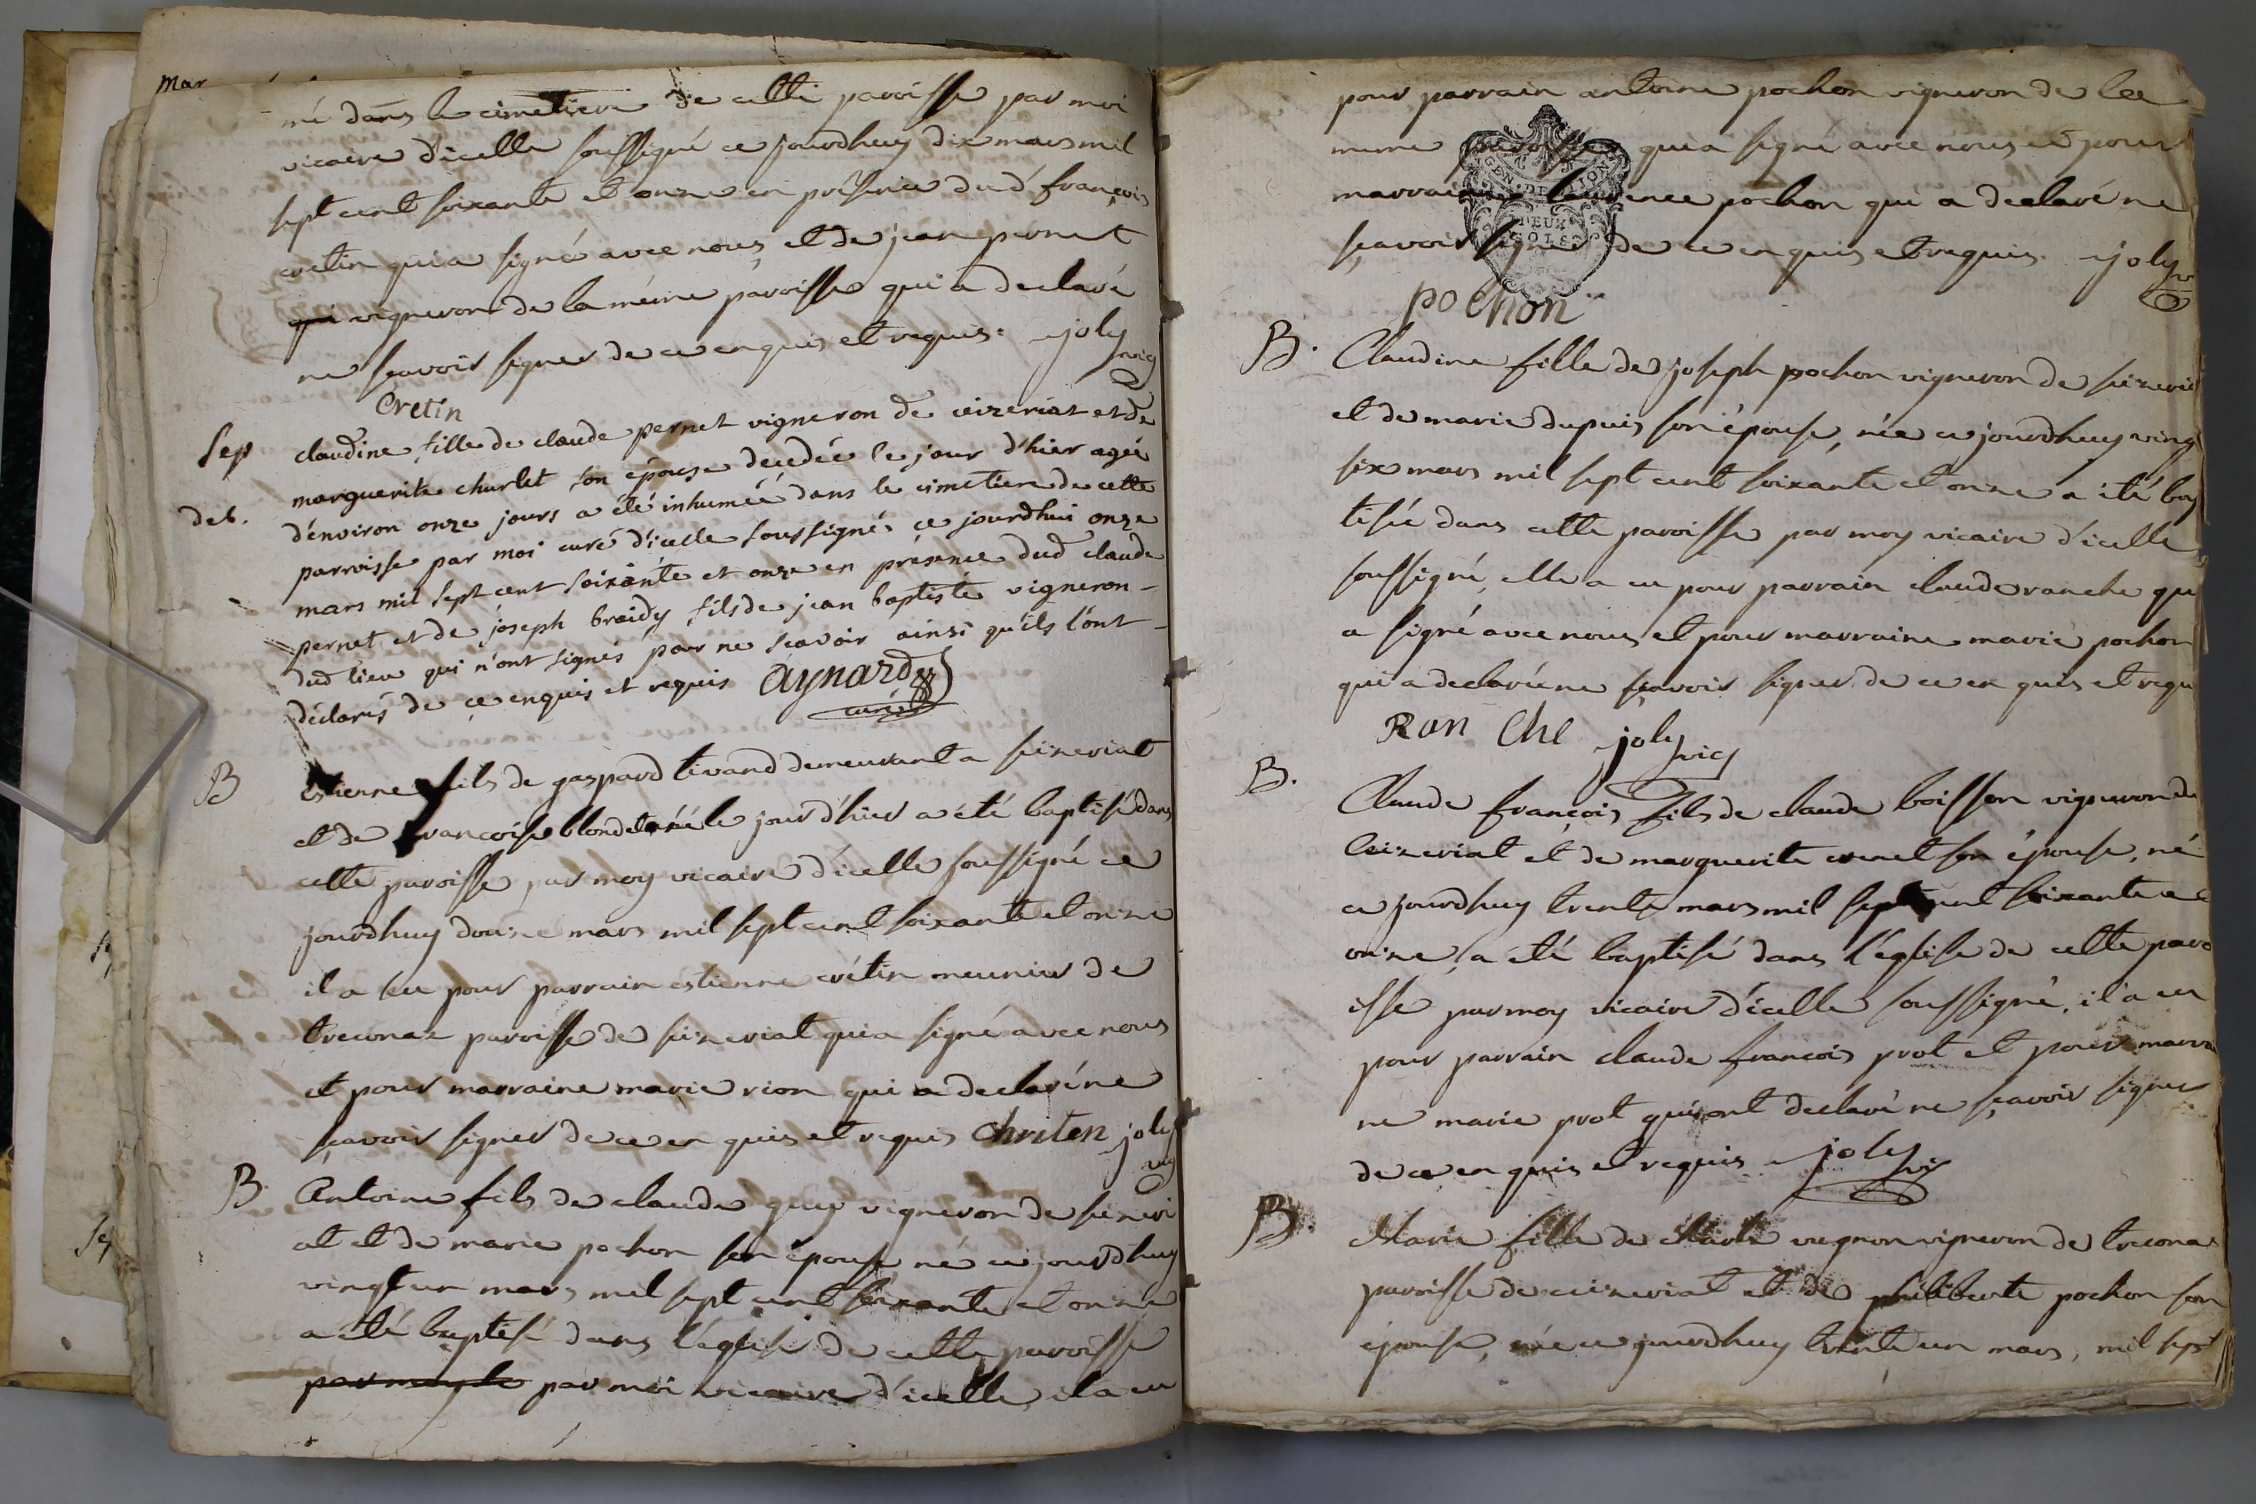 mar
mé dans le cimetiere de cette paroisse par moi
vicaire d'icelle soussigné ce jourdhuy dix mars mil
sept cent soixante et onze en présence dud françois
cretin qui a signé avec nous et de jean pernet
qui vigneron de la même paroisse qui a declaré
ne sçavoir signer de ce enquis et requis. joly vic
Cretin
Sep claudine fille de claude pernet vigneron de ceizeriat et de
marguerite churlet son épouse decedée le jour d'hier agée
deb. d'environ onze jours a été inhumée dans le cimetiere de cette
parroisse par moi curé d'icelle soussignés ce jourdhui onze
mars mil sept cent soixante et onze en présence dud claude
pernet et de joseph braidy fils de jean baptiste vigneron -
dud lieu qui n'ont signés pour ne scavoir ainsi qu'ils l'ont -
déclarés de ce enquis et requis Aynard
curé
B Estienne fils de gaspard tivand demeurant a seizeriat
et de francoise blondet né le jour d'hier a été baptisé dans
cette paroisse par moy vicaire d'icelle soussigné ce
jourdhuy douze mars mil sept cent soixante et onze
il a eu pour parrain estienne crétin meunier de
treconaz paroisse de seizeriat qui a signé avec nous
et pour marraine marie rion qui a declaré ne
sçavoir signer de ce en quis et requis Chreten joly
vic
B. Antoine fils de claude guy vigneron de seizeri
at et de marie pochon son épouse né ce jourdhuy
vingt un mars mil sept cent soixante et onze
a été baptisé dans l'église de cette paroisse
par moy le par moi vicaire d'icelle, il a eu
pour parrain antoine pochon vigneron de lee
meme paroisse qui a signé avec nous et pour
marraine pochon qui a declaré ne
sçavoir signer de ce en quis et requis. joly
pochon
GEN. DE DIJON
DEUX
SOLS
B. Claudine fille de joseph pochon vigneron de seizeria
et de marie dupuis son épouse, née ce jourdhuy ving
six mars mil sept cent soixante et onze a été bap
tisée dans cette paroisse par moy vicaire d'icelle
soussigné, elle a eu pour parrain claude ranche qu
a signé avec nous et pour marraine marie pochon
qui a declarée ne sçavoir signer de ce en quis et requ
Ran Che joly vic
B. Claude françois fils de claude boisson vigneron de
Ceizeriat et de marguerite son épouse, né
ce jourdhuy trente mars mil sept cent soixante et
onze, a été baptisé dans l'église de cette paro
isse par moy vicaire d'icelle soussigné, il a eu
pour parrain claude francois prot et pour marrai
ne marie prot qui ont declaré ne sçavoir signer
de ce en quis et requis joly vic
B. Marie fille de vigneron de trecona
paroisse de ceizeriat et de philiberte pochon son
épouse, née ce jourdhuy trente un mars, mil sept